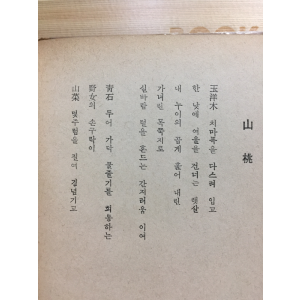 山桃
玉洋木 치마폭을 다스려 입고
한 낮에 여울을 건너는 햇살
내 누이의 곱게 훑어 내린
가녀린 목쭉지로
실바람 털을 흔드는 간지러움 이여
靑石 두어 가닥 물줄기를 희롱하는
野女의 손구락이
山菜 몇주럼을 씻어 정념기고